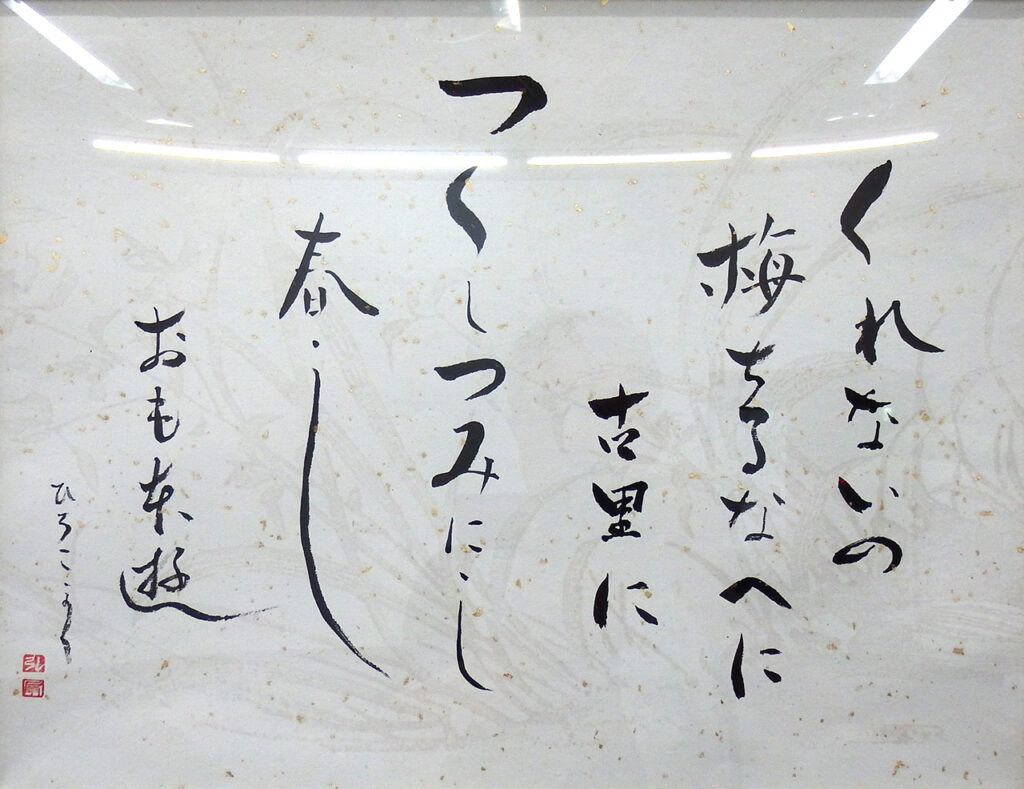 くれないの
梅ちるなへに
古里に
つくしつみにし
春し
おも本遊
ひろこ